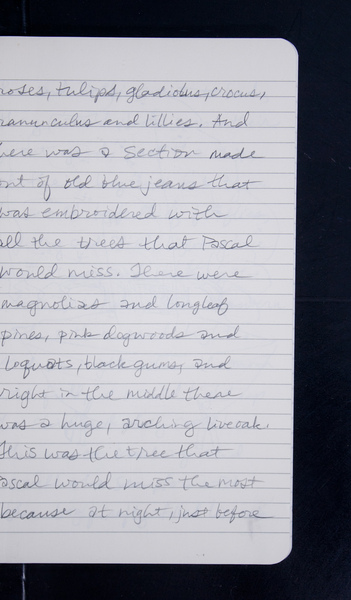 roses, tulips, gladiolus, crocus,
ranunculus and lillies. And
here was a section made
out of old blue jeans that
was embroidered with
all the trees that Pascal
would miss. There were
magnolias and longleaf
pines, pink dogwoods and
loquats, black gums, and
right in the middle there
was a huge, arching live oak.
This was the tree that
Pascal would miss the most
because at night, just before